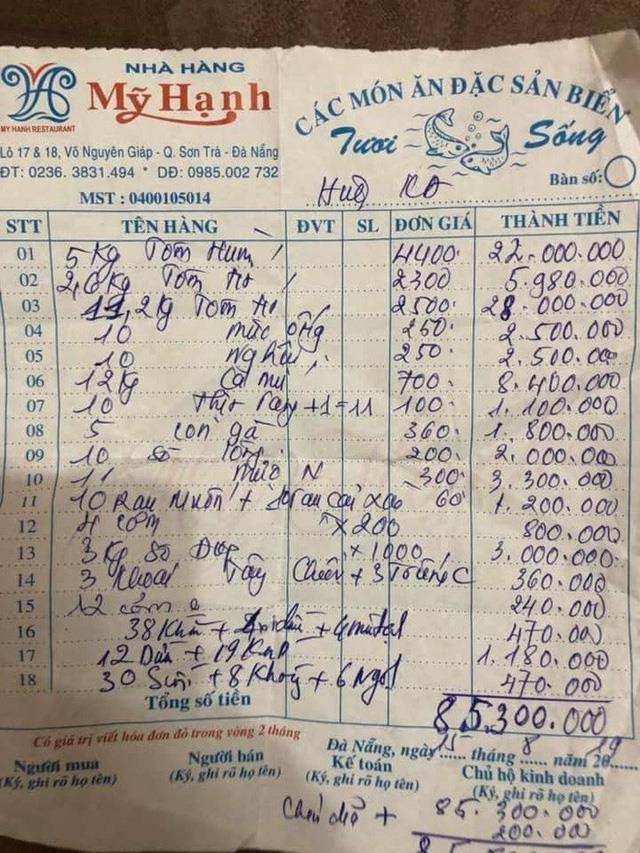 NHÀ HÀNG
Mỹ Hạnh
MY HANH RESTAURANT
Lô 17 & 18, Võ Nguyên Giáp - Q. Sơn Trà - Đà Nẵng
ĐT: 0236. 3831.494 * DĐ: 0985.002 732
MST : 0400105014
CÁC MÓN ĂN ĐẶC SẢN BIỂN
Tươi Sống
Bàn số:
STT TÊN HÀNG ĐVT SL ĐƠN GIÁ THÀNH TIỀN
01 5 Kg Tôm Hùm 4400 22.000.000
02 2,6 Kg Tôm 2300 5.980.000
03 11,2 Kg Tôm 2500 28.000.000
04 10 mực 250 2.500.000
05 10 nghêu 250 2.500.000
06 12 Kg Cá mú 700 8.400.000
07 10 Thịt +1=11 100 1.100.000
08 5 con gà 360 1.800.000
09 10 200 2.000.000
10 11 mực N 300 3.300.000
11 10 Rau Muốn + 10 rau cải xào 60 1.200.000
12 4 cơm x200 800.000
13 3 Kg Sò x1000 3.000.000
14 3 Khoai Tây Chiên + 3 Trứng C 360.000
15 12 cơm 240.000
16 38 Khăn + 470.000
17 12 Dừa + 19 1.180.000
18 30 Suối + 8 + 6 Ngọt 470.000
Tổng số tiền 85.300.000
Có giá trị viết hóa đơn đỏ trong vòng 2 tháng
Đà Nẵng, ngày 15 tháng 8 năm 2019
Người mua Người bán Kế toán Chủ hộ kinh doanh
(Ký, ghi rõ họ tên) (Ký, ghi rõ họ tên) (Ký, ghi rõ họ tên) (Ký, ghi rõ họ tên)
85.300.000
+ 200.000